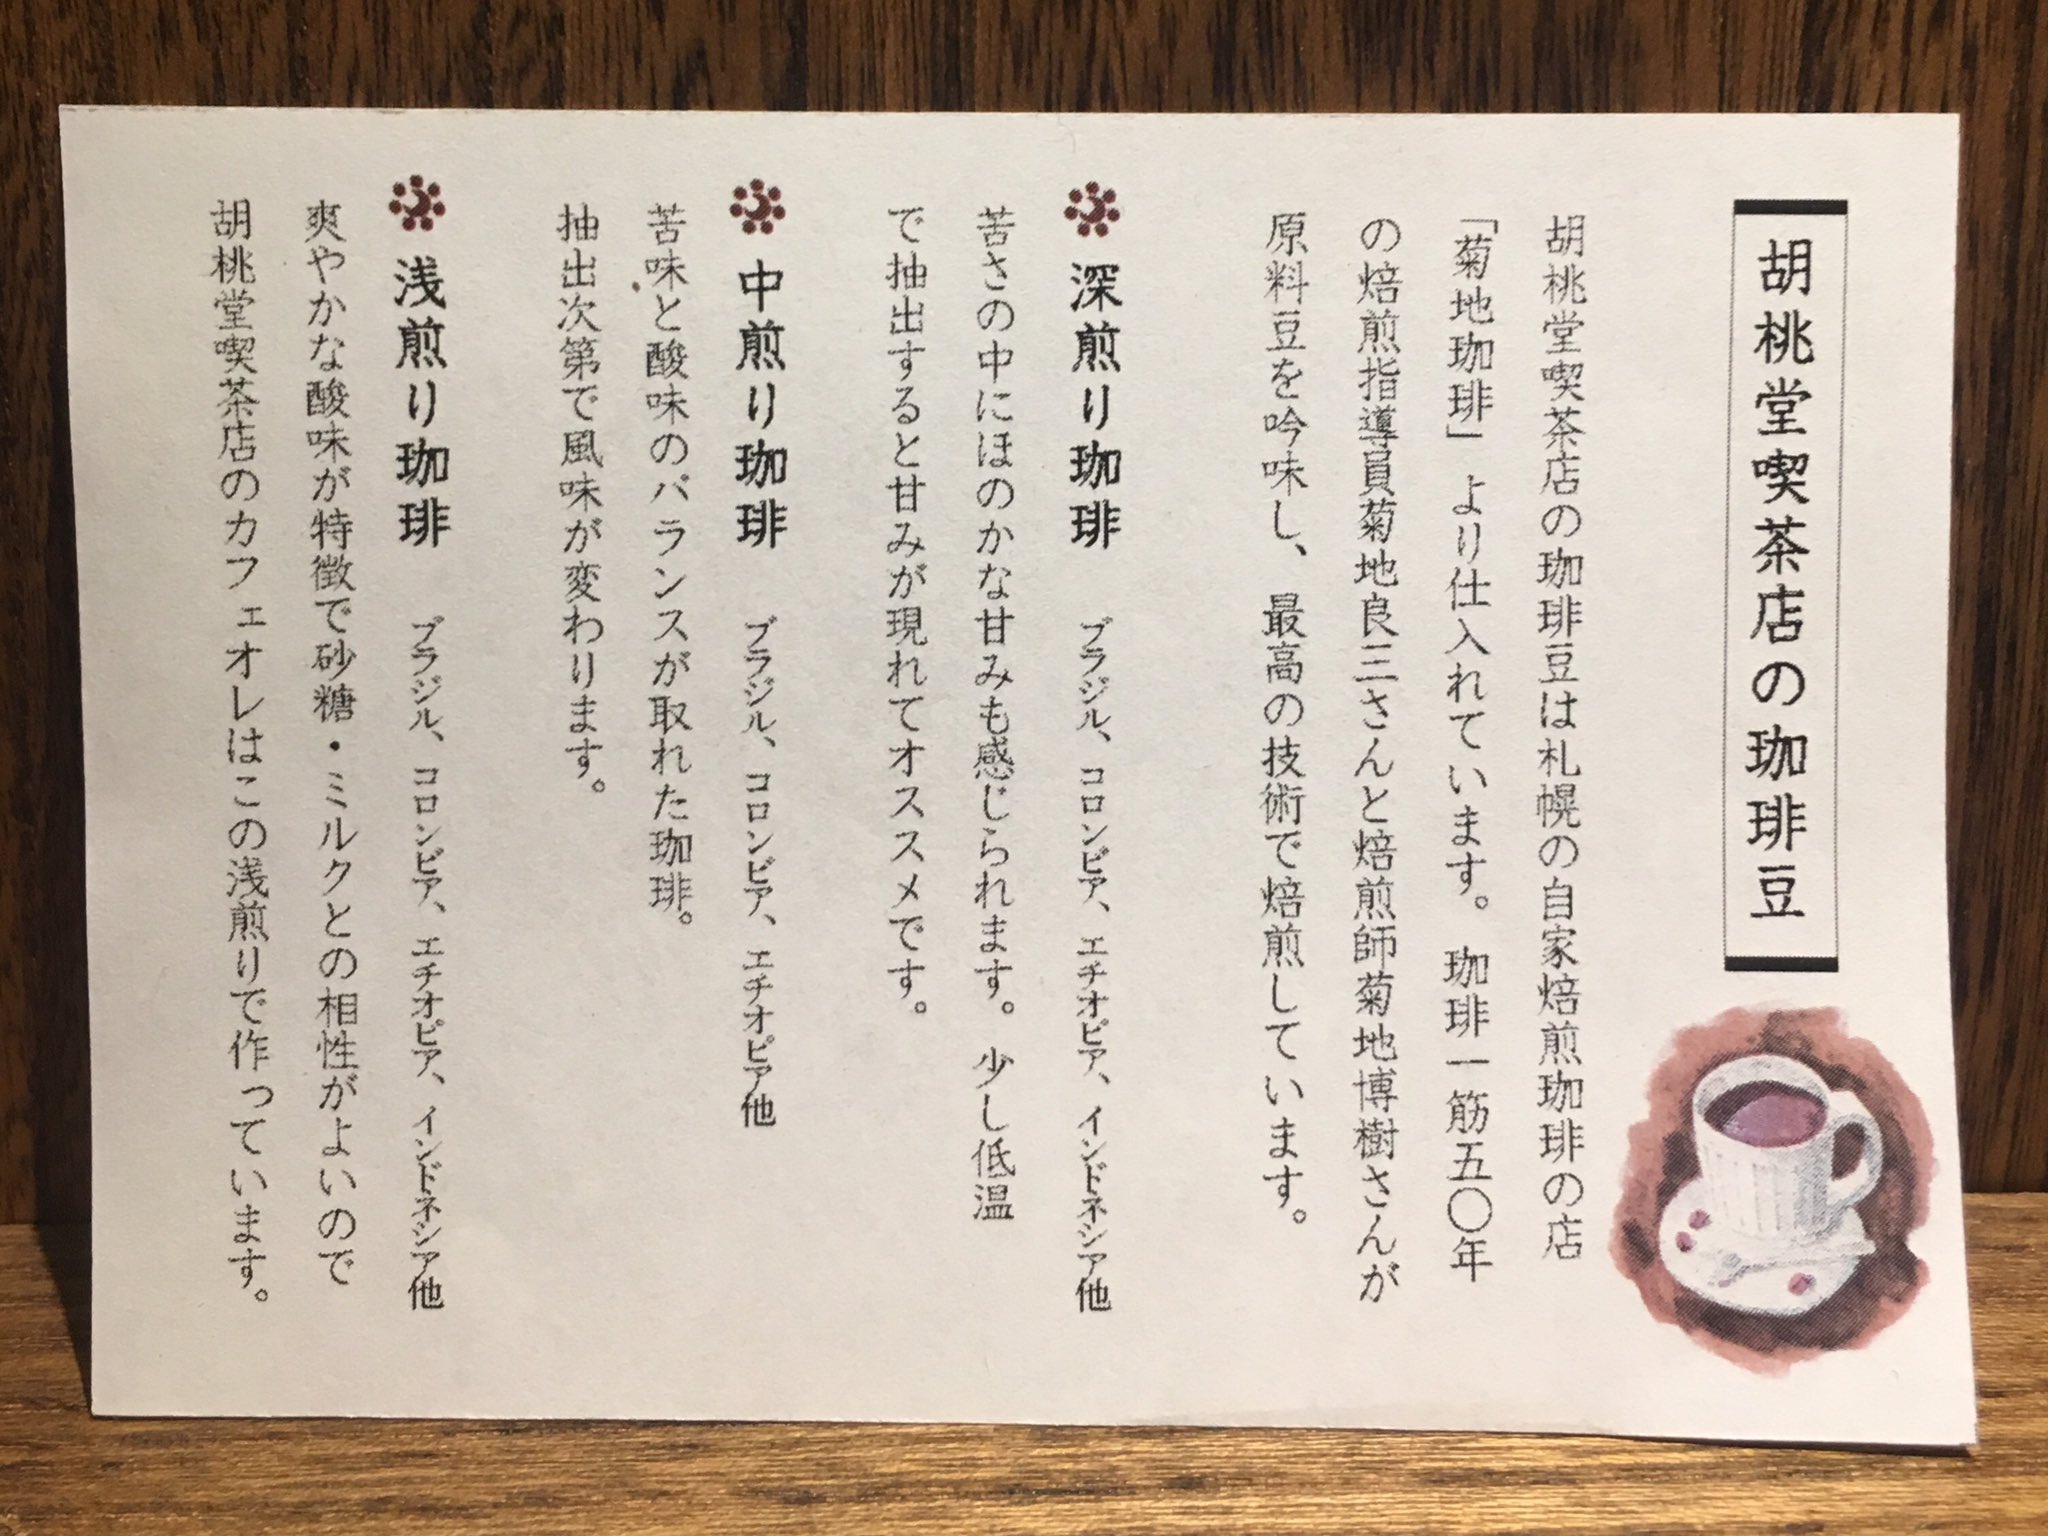 胡桃堂喫茶店の珈琲豆
胡桃堂喫茶店の珈琲豆は札幌の自家焙煎珈琲の店
「菊地珈琲」より仕入れています。珈琲一筋五〇年
の焙煎指導員菊地良三さんと焙煎師菊地博樹さんが
原料豆を吟味し、最高の技術で焙煎しています。
深煎り珈琲 ブラジル、コロンビア、エチオピア、インドネシア他
苦さの中にほのかな甘みも感じられます。少し低温
で抽出すると甘みが現れてオススメです。
中煎り珈琲 ブラジル、コロンビア、エチオピア他
苦味と酸味のバランスが取れた珈琲。
抽出次第で風味が変わります。
浅煎り珈琲 ブラジル、コロンビア、エチオピア、インドネシア他
爽やかな酸味が特徴で砂糖・ミルクとの相性がよいので
胡桃堂喫茶店のカフェオレはこの浅煎りで作っています。